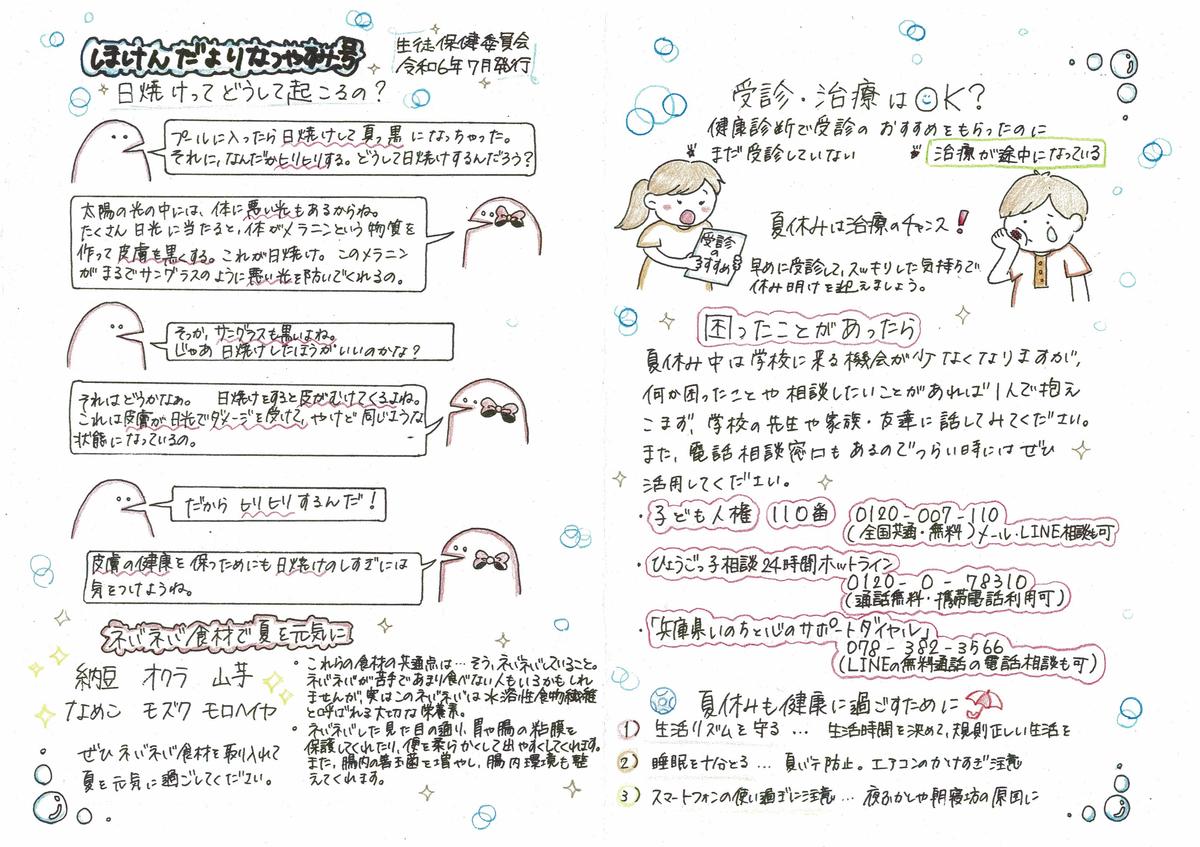 ほけんだよりなつやすみ号
生徒保健委員会
令和6年7月発行
日焼けってどうして起こるの？
プールに入ったら日焼けして真っ黒になっちゃった。
それに、なんだかヒリヒリする。どうして日焼けするんだろう？
太陽の光の中には、体に悪い光もあるからね。
たくさん日光に当たると、体がメラニンという物質を
作って皮膚を黒くする。これが日焼け。このメラニン
がまるでサングラスのように悪い光を防いでくれるの。
そっか、サングラスも黒いよね。
じゃあ日焼けしたほうがいいのかな？
それはどうかなぁ。 日焼けをすると皮がむけてくるよね。
これは皮膚が日光でダメージを受けて、やけど同じような
状態になっているの。
だからヒリヒリするんだ！
皮膚の健康を保つためにも日焼けのしすぎには
気をつけようね。
ネバネバ食材で夏を元気に
納豆 オクラ 山芋
なめこ モズク モロヘイヤ
ぜひネバネバ食材を取り入れて
夏を元気に過ごしてください。
• これらの食材の共通点は…そう、ネバネバしていること。
ネバネバが苦手であまり食べない人もいるかもしれ
ませんが、実はこのネバネバは水溶性食物繊維
と呼ばれる大切な栄養素。
• ネバネバした見た目の通り、胃や腸の粘膜を
保護してくれたり、便を柔らかくして出やすくしてくれます。
また、腸内の善玉菌を増やし、腸内環境も整
えてくれます。
受診・治療はOK？
健康診断で受診のおすすめをもらったのに
まだ受診していない
治療が途中になっている
受診
の
すすめ
夏休みは治療のチャンス！
早めに受診して、スッキリした気持ちで
休み明けを迎えましょう。
困ったことがあったら
夏休み中は学校に来る機会が少なくなりますが、
何か困ったことや相談したいことがあれば1人で抱え
こまず、学校の先生や家族・友達に話してみてください。
また、電話相談窓口もあるのでつらい時にはぜひ
活用してください。
・子ども人権 110番 0120-007-110
(全国共通・無料)メール・LINE相談も可
・ひょうごっ子相談24時間ホットライン
0120-0-78310
(通話無料・携帯電話利用可)
・「兵庫県いのちと心のサポートダイヤル」
078-382-3566
(LINEの無料通話の電話相談も可)
夏休みも健康に過ごすために
1) 生活リズムを守る … 生活時間を決めて、規則正しい生活を
2) 睡眠を十分とる … 夏バテ防止。エアコンのかけすぎ注意
3) スマートフォンの使い過ぎに注意 … 夜ふかしや朝寝坊の原因に